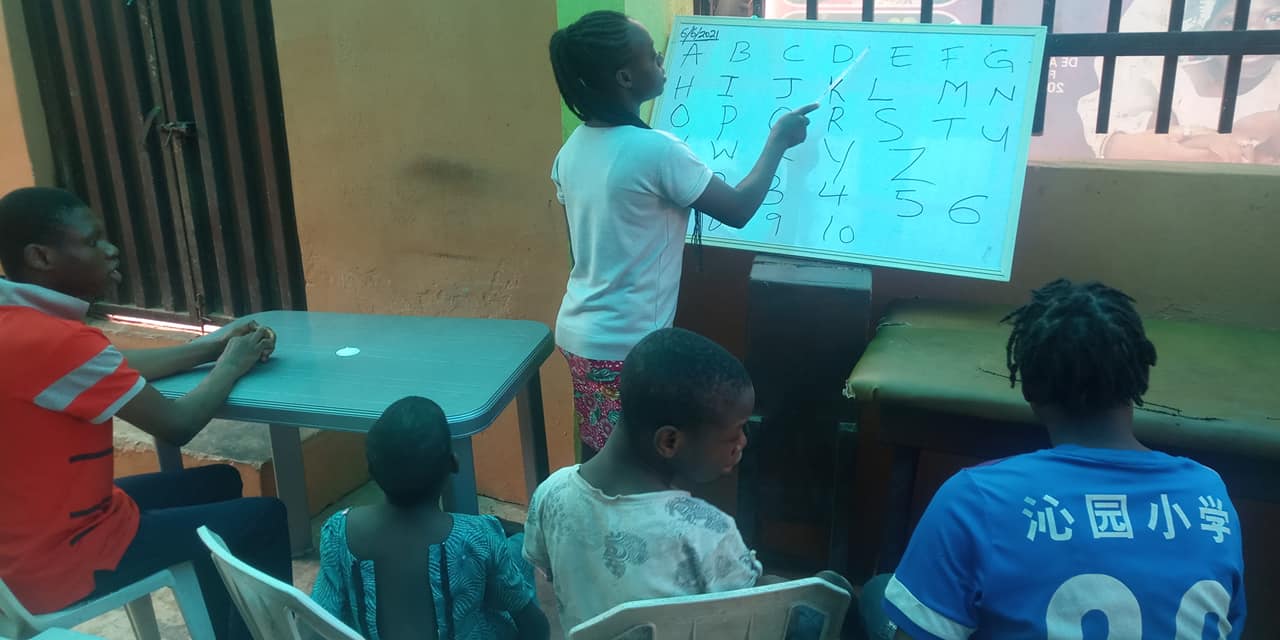 6/6/2021
A B C D E F G
H I J K L M N
O P Q R S T U
W Y Z
3 4 5 6
9 10
沁园小学
DE A
F
20